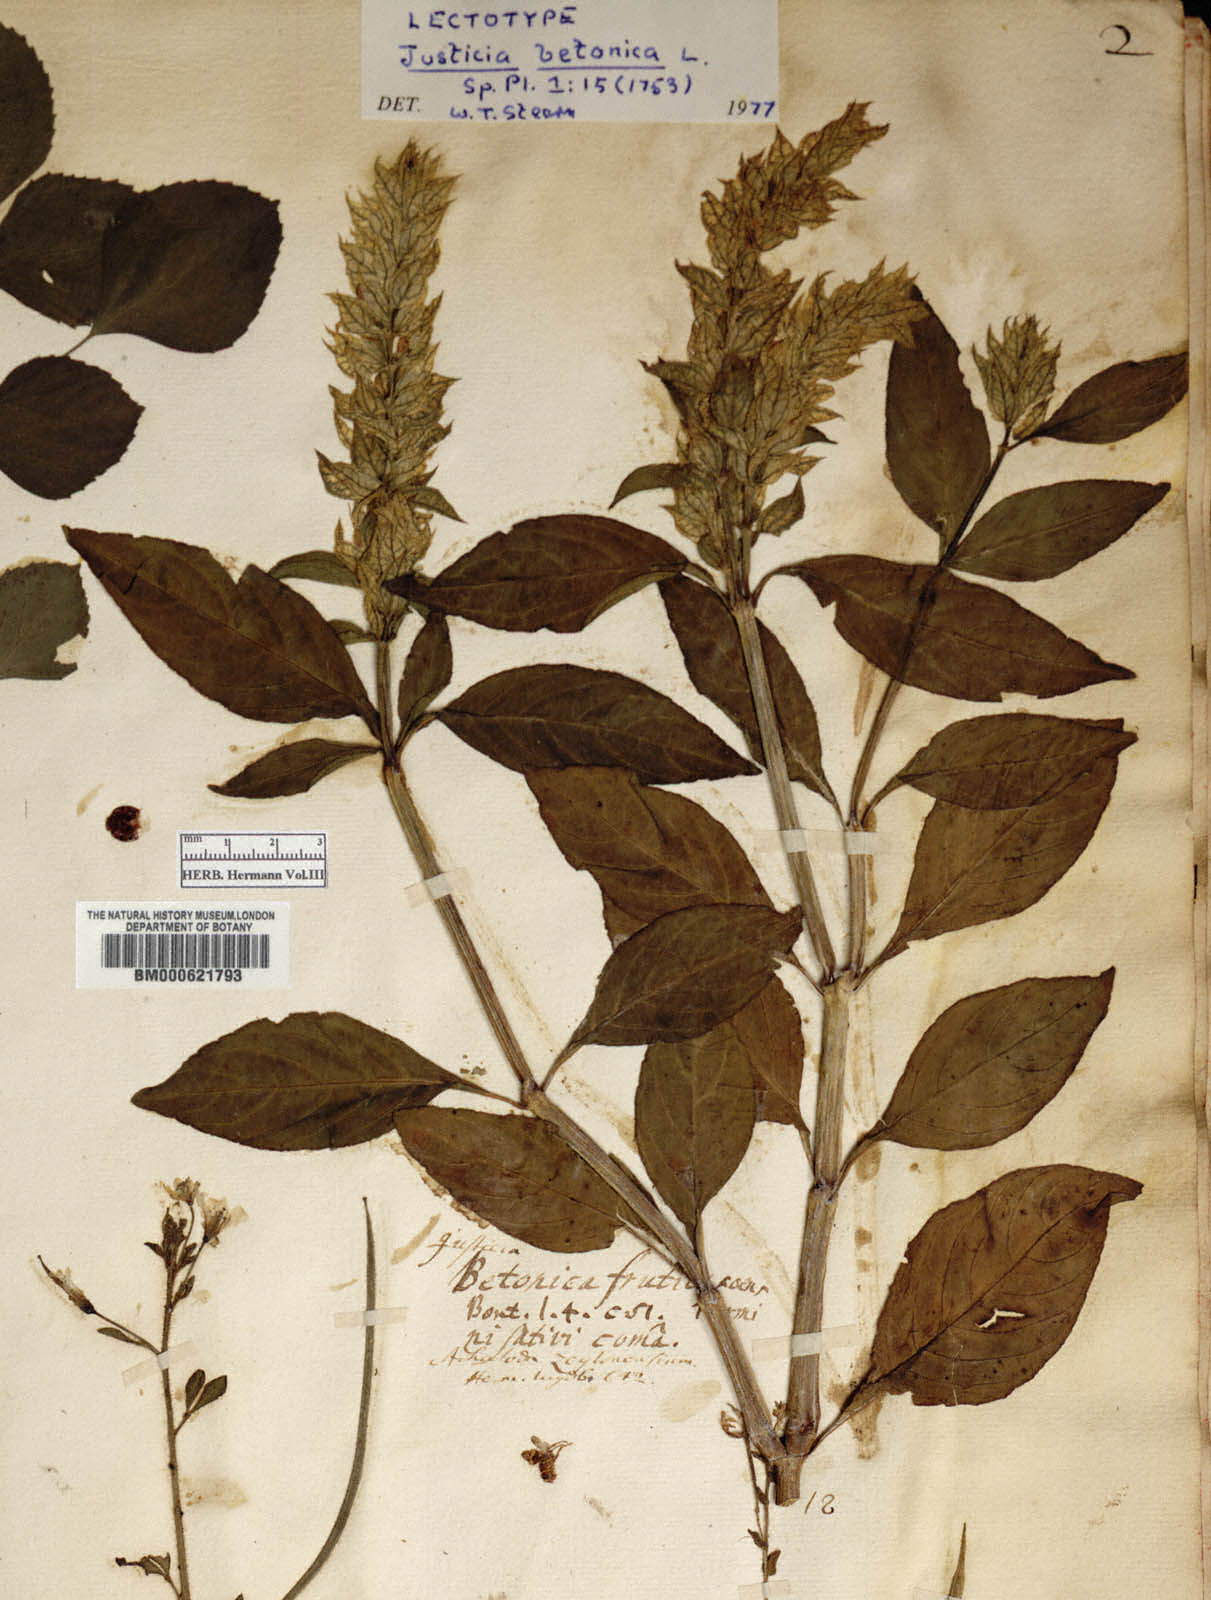 2
LECTOTYPE
Justicia betonica L.
Sp. Pl. 1:15 (1753)
DET. W.T. Stearn 1977
mm 1 2 3
HERB. Hermann Vol.III
THE NATURAL HISTORY MUSEUM,LONDON
DEPARTMENT OF BOTANY
BM000621793
Justicia
Betonica
Bont. l. 4. c 51.
ni sativi comâ.
zeylonensium
Herm.
18